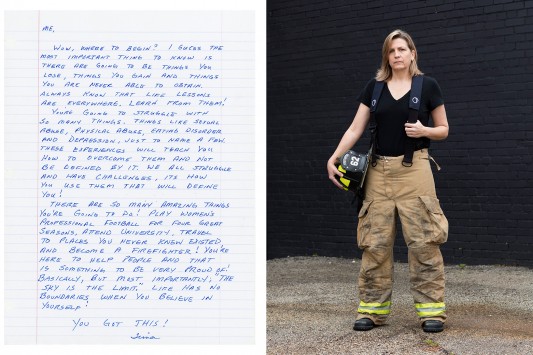 ME,
WOW, WHERE TO BEGIN? I GUESS THE
MOST IMPORTANT THING TO KNOW IS
THERE ARE GOING TO BE THINGS YOU
LOSE, THINGS YOU GAIN AND THINGS
YOU ARE NEVER ABLE TO OBTAIN.
ALWAYS KNOW THAT LIFE LESSONS
ARE EVERYWHERE. LEARN FROM THEM!
YOUR GOING TO STRUGGLE WITH
SO MANY THINGS. THINGS LIKE SEXUAL
ABUSE, PHYSICAL ABUSE, EATING DISORDER
AND DEPRESSION, JUST TO NAME A FEW.
THESE EXPERIENCES WILL TEACH YOU
HOW TO OVERCOME THEM AND NOT
BE DEFINED BY IT. WE ALL STRUGGLE
AND HAVE CHALLENGES, ITS HOW
YOU USE THEM THAT WILL DEFINE
YOU!
THERE ARE SO MANY AMAZING THINGS
YOU'RE GOING TO DO! PLAY WOMEN'S
PROFESSIONAL FOOTBALL FOR FOUR GREAT
SEASONS, ATTEND UNIVERSITY, TRAVEL
TO PLACES YOU NEVER KNEW EXISTED
AND BECOME A FIREFIGHTER! YOU'RE
HERE TO HELP PEOPLE AND THAT
IS SOMETHING TO BE VERY PROUD OF!
BASICALLY, BUT MOST IMPORTANTLY, "THE
SKY IS THE LIMIT." LIFE HAS NO
BOUNDARIES WHEN YOU BELIEVE IN
YOURSELF!
YOU GOT THIS!
62